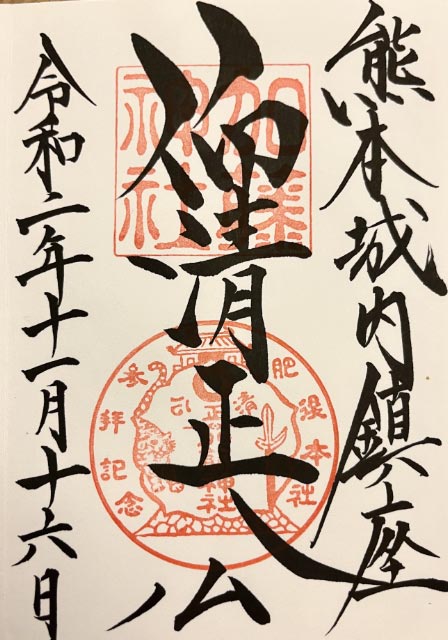 熊本城内鎮座
仰清正公
加藤神社
肥後本社
参拝記念
令和二年十一月十六日